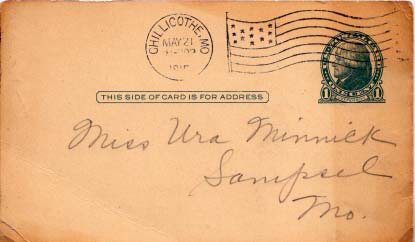 CHILLICOTHE, MO
MAY 21
THIS SIDE OF CARD IS FOR ADDRESS
1 1
Miss Ura Minnick
Sampsel
Mo.